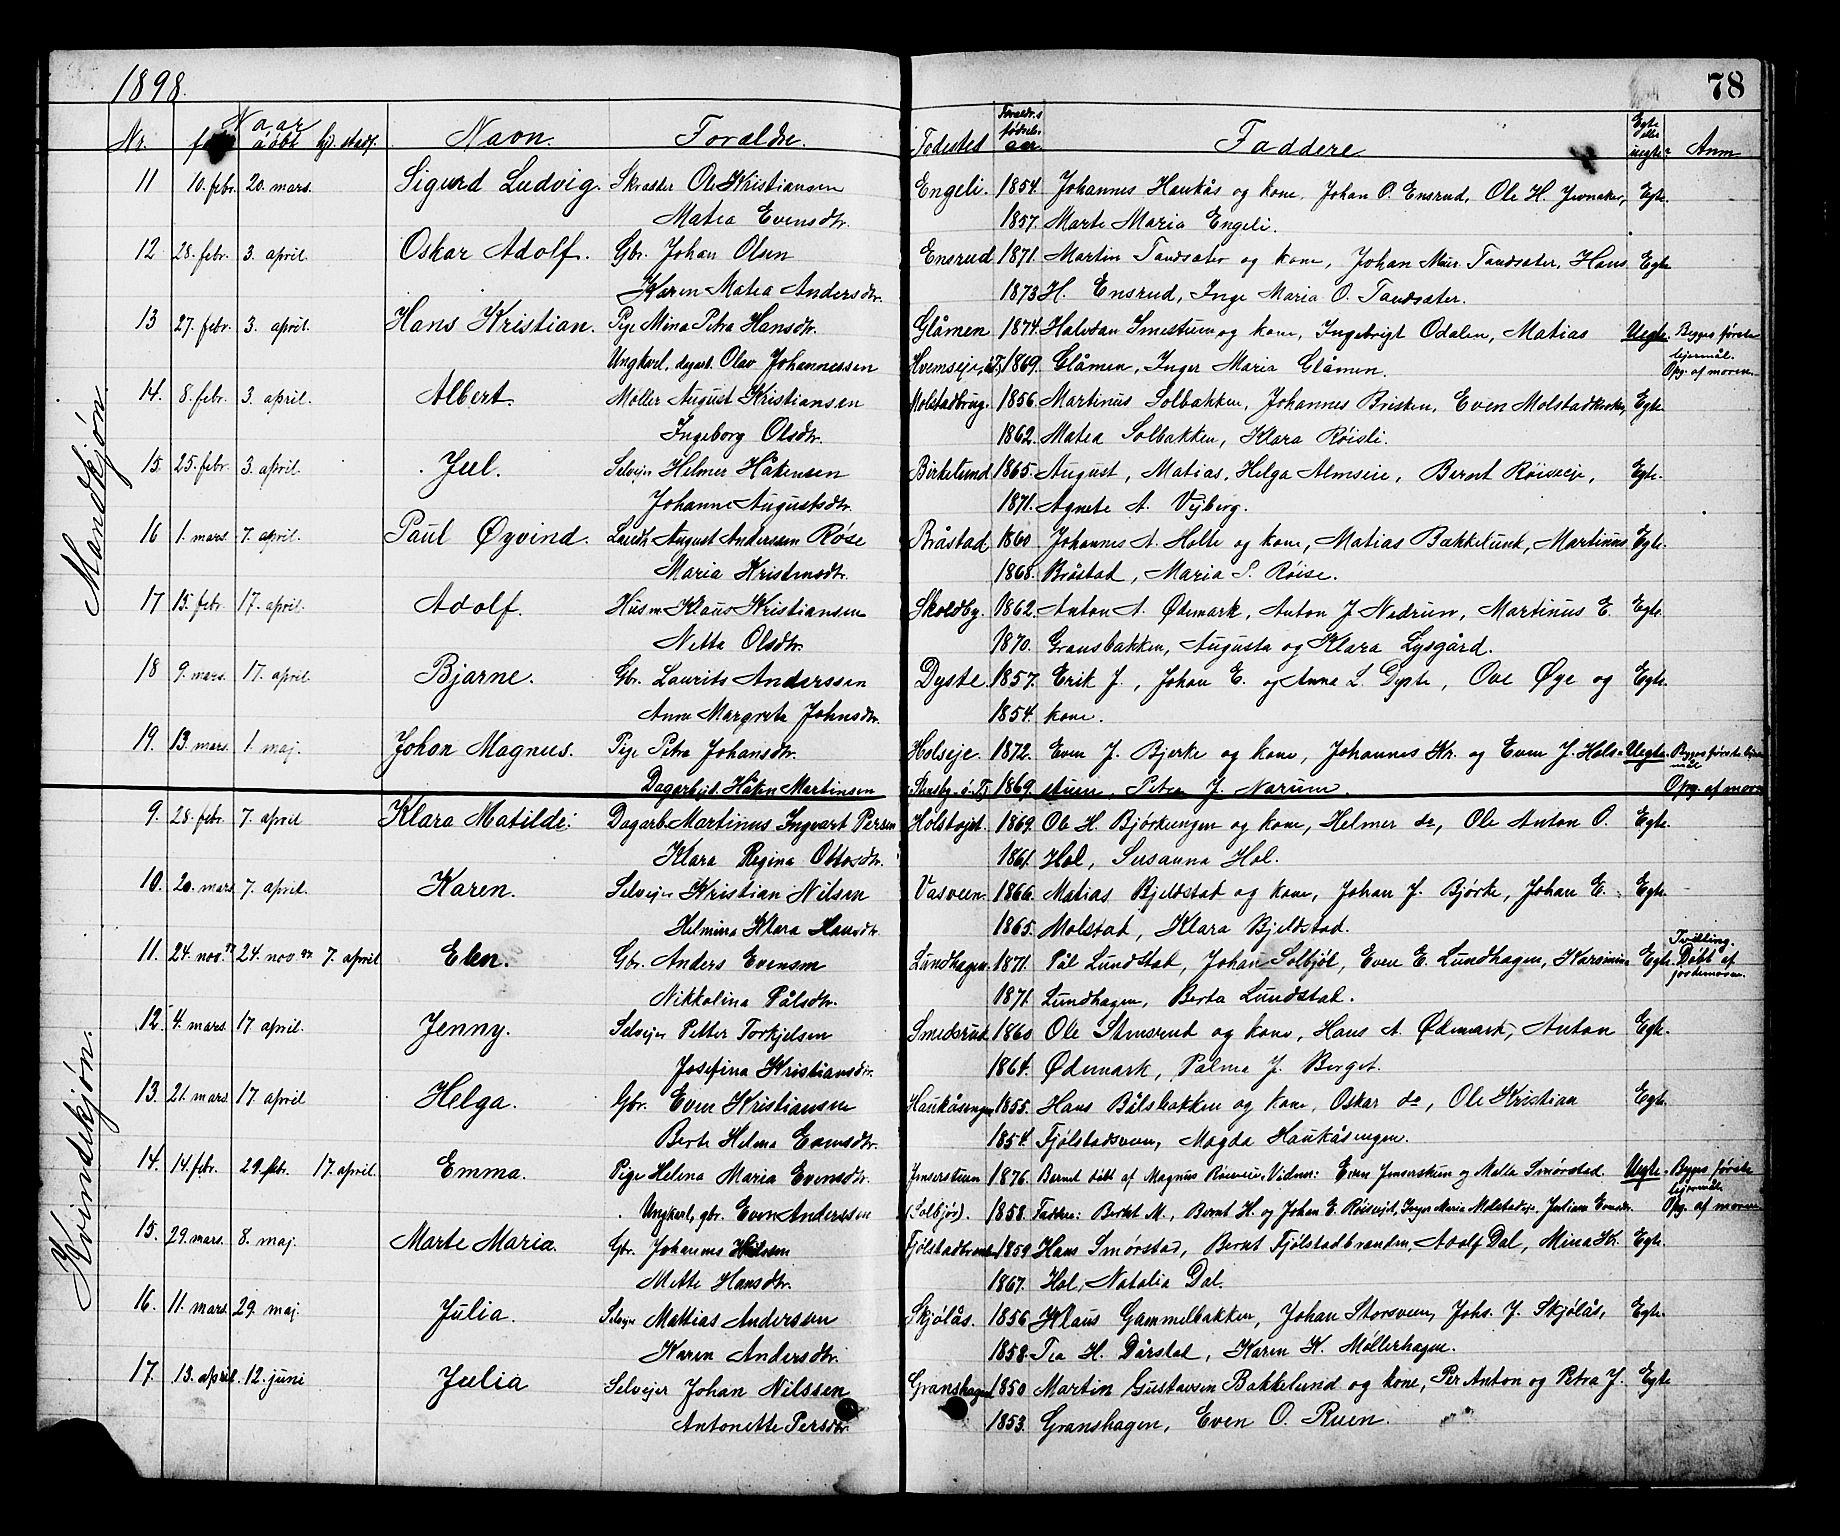 1898. 78
Nr. Naar født døbt hj. stadf. Navn. Foraldre. Fødested Foraldr.s fødsels aar. Faddere. Egte eller uegte Anm
Mandkjøn.
11 10. febr. 20. mars. Sigurd Ludvig. Skrædder Ole Kristiansen Engeli. 1854. Johannes Haukås og kone, Johan O. Ensrud, Ole H. Jevnaker, Egte.
Matea Evensdtr. 1857. Marte Maria Engeli.
12 28. febr. 3. april. Oskar Adolf. Gbr. Johan Olsen Ensrud 1871. Martin Tandsæter og kone, Johan Mar. Tandsæter, Hans Egte
Karen Matea Andersdtr. 1873 H. Ensrud, Inge Maria O. Tandsæter.
13 27. febr. 3. april. Hans Kristian. Pige Mina Petra Hansdtr. Glåmen 1874. Halvdan Smestuen og kone, Ingebrigt Odalen, Matias Uegte. Begges første
Ungkarl, dagarb. Olav Johannessen Hvemseje, ø.T. 1869. Glåmen, Inger Maria Glåmen. lejermål. Opg. af moren
14. 8. febr. 3. april. Albert. Møller August Kristiansen Molstadbrug. 1856. Martinus Solbakken, Johannes Brisken, Even Molstadkroken, Egte.
Ingeborg Olsdtr. 1862. Matea Solbakken, Klara Røisli.
15. 25. febr. 3. april. Juul. Selvejer Helmer Håkensen Birkelund 1865. August, Matias, Helga Almseie, Bernt Røiseeje, Egte.
Johanne Augustsdtr. 1871. Agnete A. Vyberg.
16 1. mars 7. april. Paul Øyvind. Landh August Anderssen Røse Bråstad 1860 Johannes A. Holte og kone, Matias Bakkelund, Martinus Egte.
Maria Kristensdtr. 1868. Bråstad, Maria S. Røise.
17 15. febr. 17. april. Adolf. Husm Klaus Kristiansen Skoldby. 1862. Anton A. Ødemark, Anton J. Nedrum, Martinus E. Egte.
Netta Olsdtr. 1870. Gransbakken, Augusta og Klara Lysgård.
18 9. mars. 17. april. Bjarne. Gbr. Laurits Anderssen Dyste 1857. Erik J., Johan E. og Anne L. Dyste, Ove Øye og Egte.
Anne Margrete Johnsdtr. 1854. kone.
19. 13. mars. 1. maj. Johan Magnus. Pige Petra Johansdtr. Holseje. 1872. Even J. Bjerke og kone, Johannes Kr. og Even J. Hols- Uegte. Begges første lejermål
Dagarbejd. Håken Martinsen ø. Tj 1869. stuen, Peter J. Narum. Opg. af moren
Kvindekjøn.
9. 28. febr. 7. april Klara Matilde. Dagarb. Martinus Ingvart Persen Holstøjet. 1869. Ole H. Bjørkeengen og kone, Helmer do, Ole Anton O. Egte.
Klara Regina Ottosdtr. 1861. Hol, Susanna Hol.
10. 20. mars. 7. april. Karen. Selvejer Kristian Nilsen Vasveen. 1866. Matias Bjeldstad og kone, Johan J. Bjørke, Johan E. Egte.
Helmina Klara Hansdtr. 1865. Molstad, Klara Bjeldstad.
11. 24. nov. 97 24. nov. 97 7. april Elen. Gbr. Anders Evensen Lundhagen 1871. Pål Lundstad, Johan Solbjøl, Even E. Lundhagen, Karsmine Egte. Tvilling. Døbt af
Nikkolina Pålsdtr. 1871. Lundhagen, Berta Lundstad. jordemoren.
12. 4. mars 17 april. Jenny. Selvejer Petter Torkjelsen Smedsrud 1860 Ole Stensrud og kone, Hans A. Ødemark, Anton Egte.
Josefina Kristiansdtr. 1864. Ødemark, Palma J. Berget.
13. 21. mars 17 april Helga. Gbr. Even Kristiansen Haukåsengen 1855. Hans Bålsbakken og kone, Oskar do, Ole Kristian Egte.
Berte Helena Evensdtr. 1854. Fjølstadsveen, Magda Haukåsengen.
14. 14. febr. 29. febr. 17. april. Emma. Pige Helena Maria Evensdtr. Jemserstuen 1876. Barnet døbt af Magnus Vidner: Even Jemserstuen og Matea Smørstad. Uegte. Begges første lejermål.
Ungkarl, gbr. Even Anderssen (Solbjør). 1858. Faddere: Berthe M., Bernt H. og Johan E. Røisejet, Inger Maria Molstadeje, Juliane Evensdtr. Opg. af moren
15. 29. mars. 8. maj. Marte Maria. Gbr. Johannes Nilsen Fjølstadbranden. 1859. Hans Smørstad, Bernt Fjølstadbranden, Adolf Dal, Mina Kr. Egte.
Mette Hansdtr. 1867. Hol, Natalia Dal.
16. 11. mars. 29. maj. Julia. Selvejer Mathias Andersen Skjølås. 1856 Klaus Gammelbakken, Johan Storsveen, Johs. J. Skjølås, Egte.
Karen Andersdtr. 1858. Tea H. Dårstad, Karen K. Møllerhagen.
17. 13. april. 12. juni Julia Selvejer Johan Nilssen Granshagen 1850 Martin Gustavsen Bakkelund og kone, Per Anton og Petra J. Egte
Antonette Persdtr. 1853. Granshagen, Even O. Ruen.